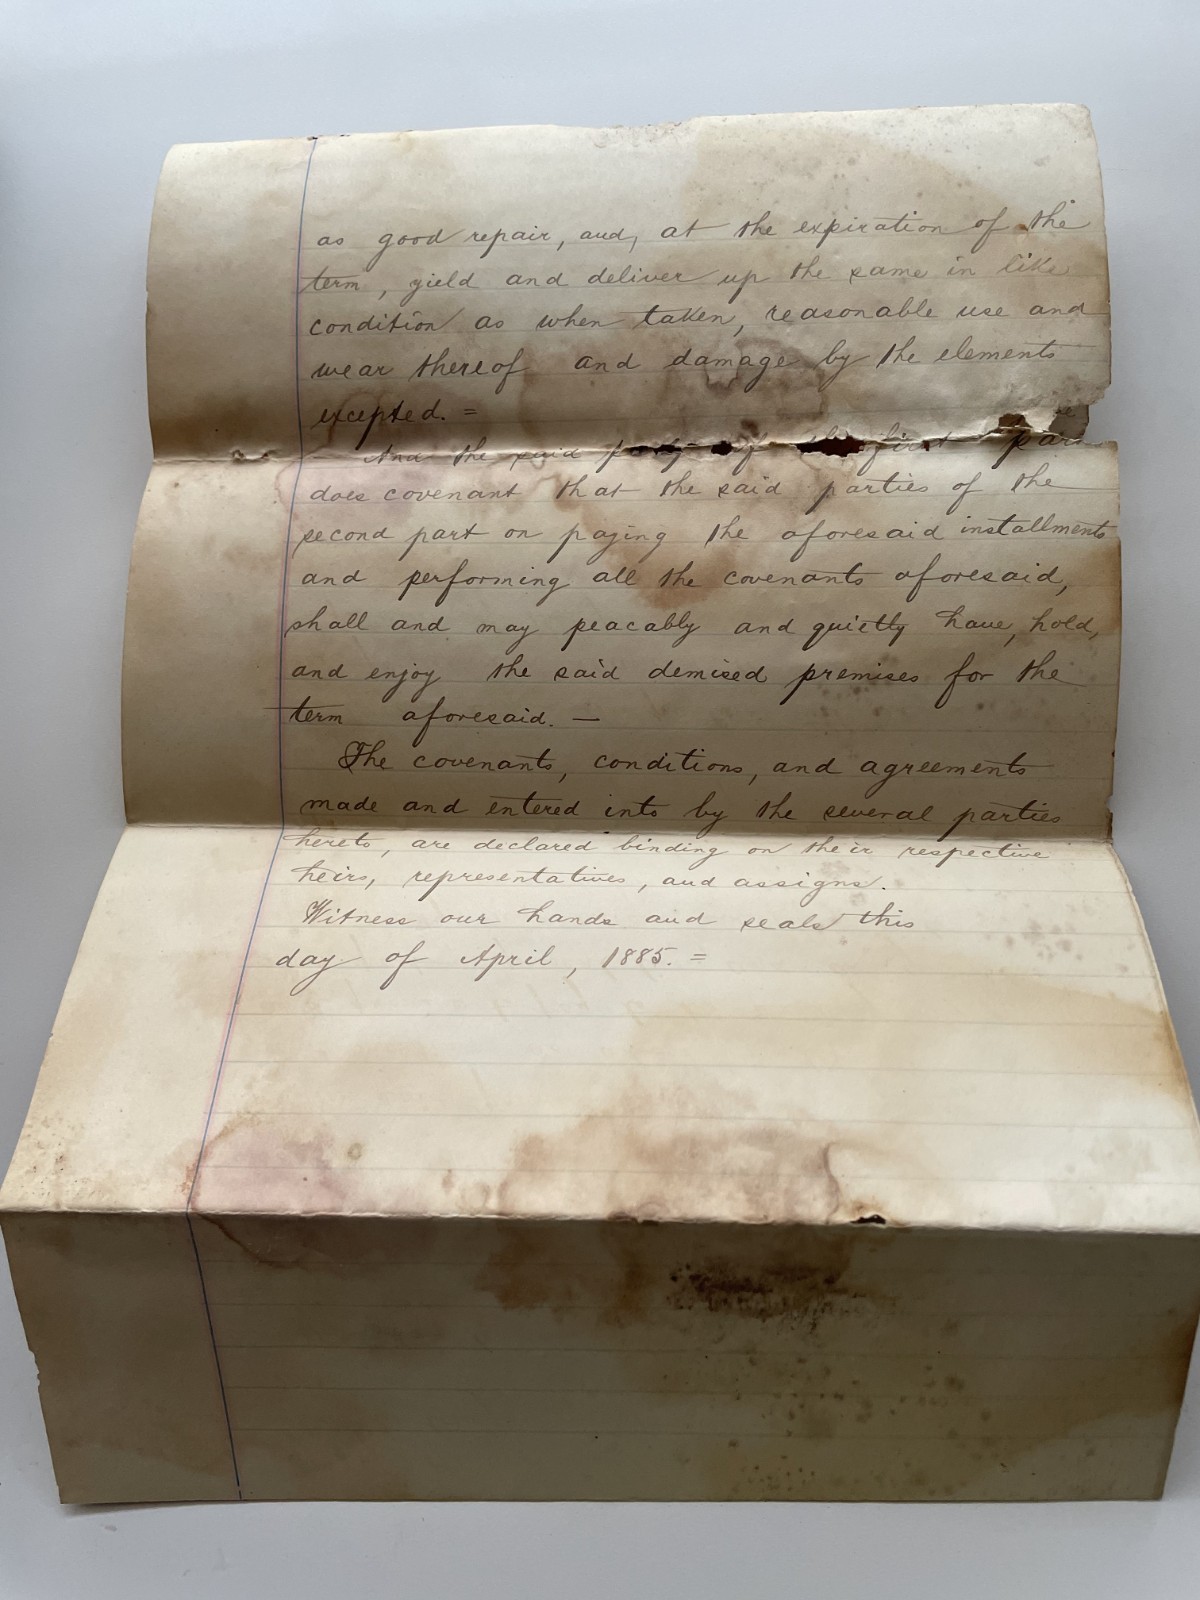 as good repair, and, at the expiration of the
term, yield and deliver up the same in like
condition as when taken, reasonable use and
wear thereof and damage by the elements
excepted. =
And the said party of the first part
does covenant that the said parties of the
second part on paying the aforesaid installments
and performing all the covenants aforesaid,
shall and may peacably and quietly have, hold,
and enjoy the said demised premises for the
term aforesaid. —
The covenants, conditions, and agreements
made and entered into by the several parties
hereto, are declared binding on their respective
heirs, representatives, and assigns.
Witness our hands and seals this
day of April, 1885. =